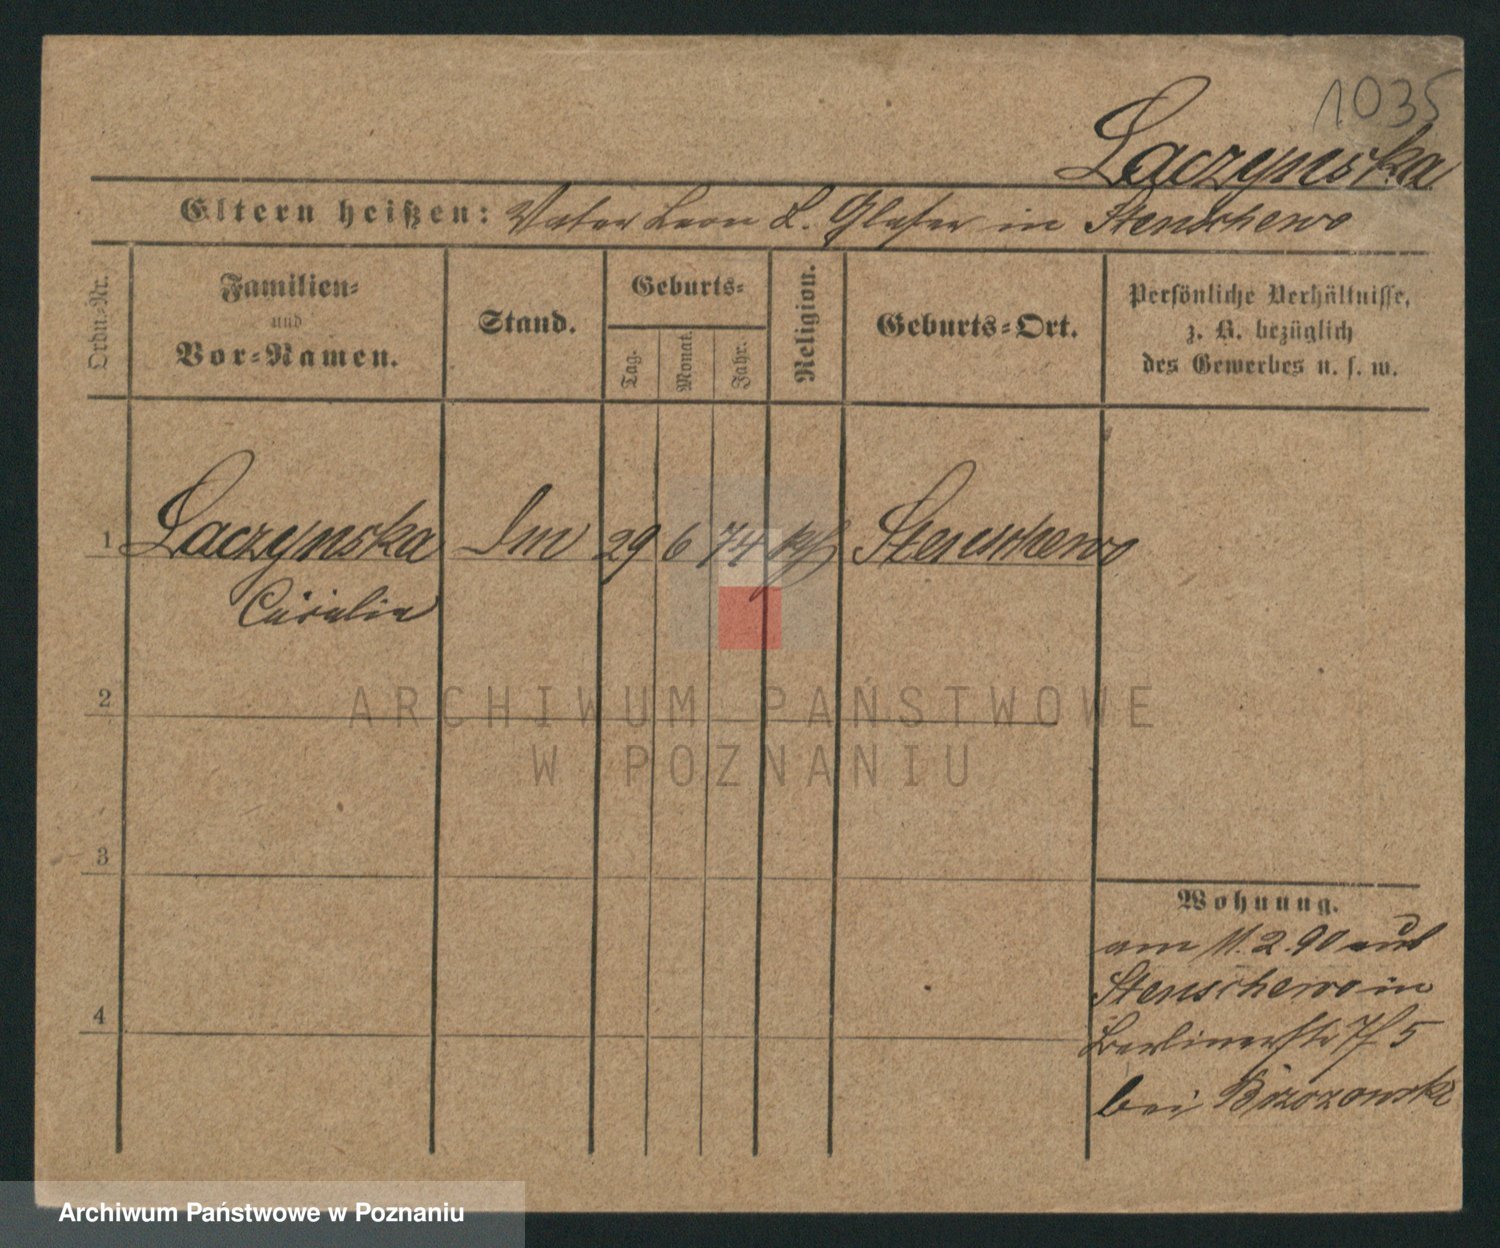 1035
Laczynska
Eltern heißen: Vater Leon L. Glaser in Stenschewo
Ordn.-Nr.
Familien-
und
Vor-Namen.
Stand.
Geburts-
Tag.
Monat.
Jahr.
Religion.
Geburts-Ort.
Persönliche Verhältnisse,
z. B. bezüglich
des Gewerbes u. s. w.
1 Laczynska 29 6 74 kth Stenschewo
2
3
4
Wohnung.
am 11.2.90 aus
Stenschewo in
Berlinerstr 7/5
bei Brzozowski
ARCHIWUM PAŃSTWOWE
W POZNANIU
Archiwum Państwowe w Poznaniu